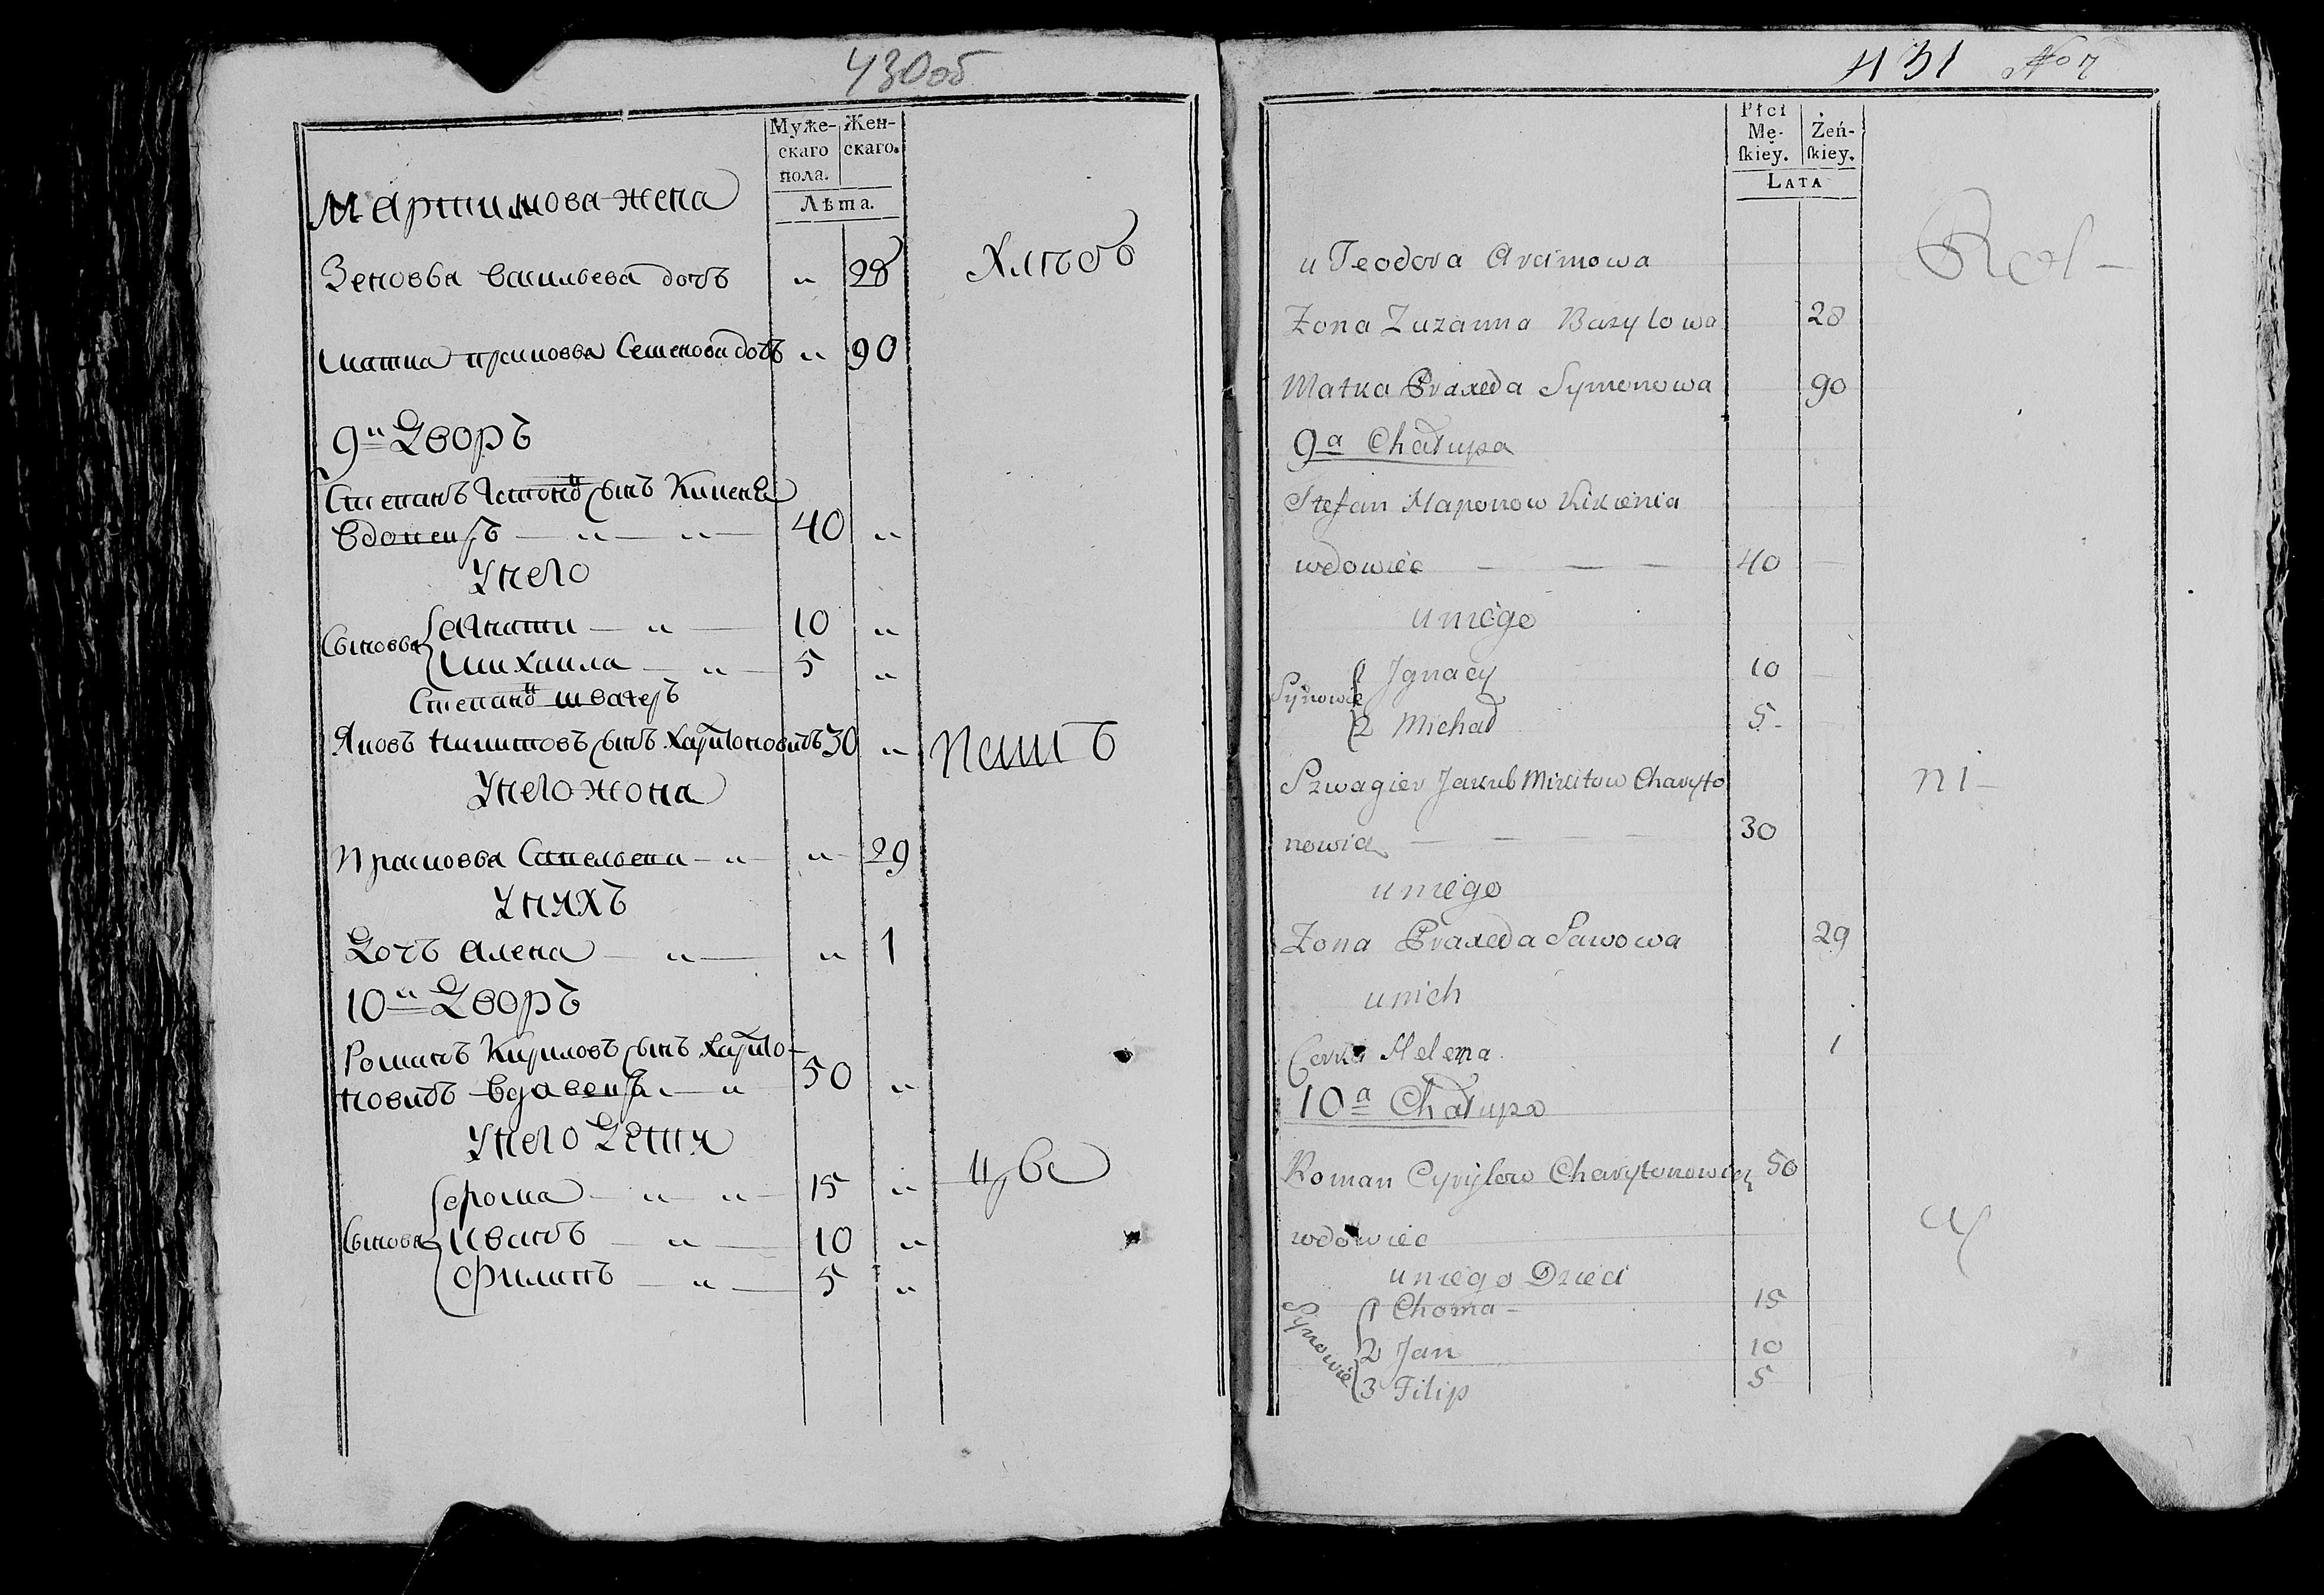 430об
Муже- Жен-
скаго скаго.
пола.
Лѣта.
Мартимова жена
Зеновья Васильева дочь " 28
Хлѣбъ
матка Прасковья Семенова дочь " 90
9й Дворъ
Степанъ сынъ
вдовецъ — " — " — 40 "
У него
сыновья
— " — 10 "
Михаила — " — 5 "
Степана швагеръ
Яковъ Никитовъ сынъ Харитоновичъ 30 "
У него жена
Прасковья — " — " 29
У нихъ
Дочь Алена — " — " 1
10й Дворъ
Романъ Кириловъ сынъ Харито-
новичъ вдовецъ — " 50 "
У него Дѣти
Сыновья
Фома — " — " — 15 "
Иванъ — " — 10 "
Филипъ — " — 5 "
431 No 7
Płci
Mę- Żeń-
ſkiey. ſkiey.
LATA
u Teodora Arcimowa
Rol -
Żona Zuzanna Bazylowa 28
Matka Praxeda Symonowa 90
9a Chałupa
Stefan Haponow Kikienia
wdowiec — — — 40
u niego
Synowie
1 Jgnacy 10
2 Michał 5
Szwagier Jakub Mikitow Charyto
ni -
nowicz — — — — 30
u niego
Żona Praxeda Sawowa 29
u nich
Corka Helena 1
10a Chałupa
Roman Cyryłow Charytonowicz 50
wdowiec
u niego Dzieci
Synowie
1 Choma - 15
2 Jan 10
3 Filip 5